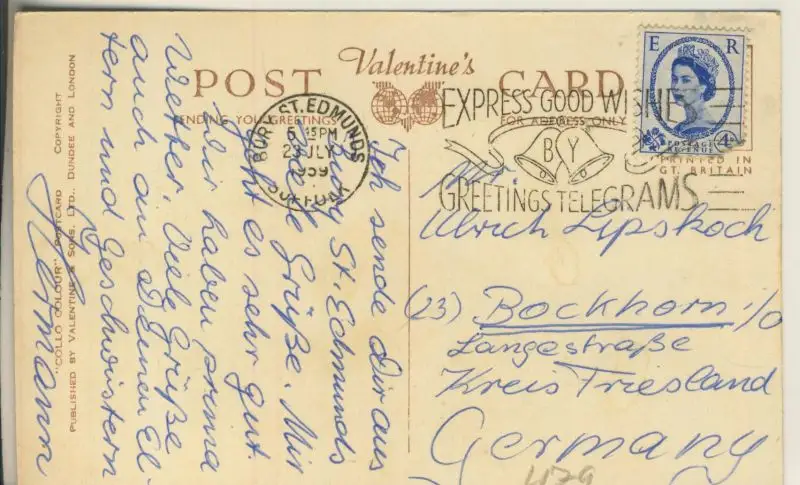 POST Valentine's CARD
SENDING YOU GREETINGS
FOR ADDRESS ONLY
PRINTED IN
GT. BRITAIN
E R
POSTAGE
REVENUE
4D
BURY ST. EDMUNDS
5 15 PM
23 JLY
1959
SUFFOLK
EXPRESS GOOD WISHE
BY
GREETINGS TELEGRAMS
COPYRIGHT
"COLLO COLOUR" POSTCARD
PUBLISHED BY VALENTINE & SONS, LTD., DUNDEE AND LONDON
Ich sende Dir aus
Bury St. Edmunds
viele Grüße. Mir
geht es sehr gut.
Wir haben prima
Wetter. Viele Grüße
auch an Deinen El-
tern und Geschwistern
Hermann
Ulrich Lipskoch
(23) Bockhorn i/O
Langestraße
Kreis Friesland
Germany
479